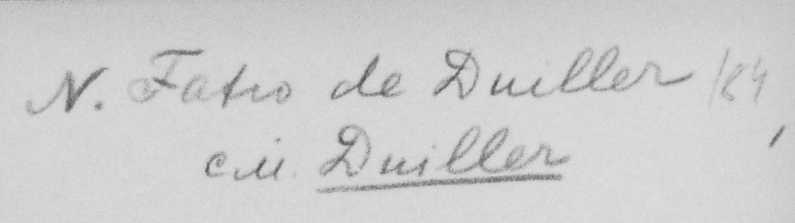 N. Fatio de Duiller /64
см. Duiller